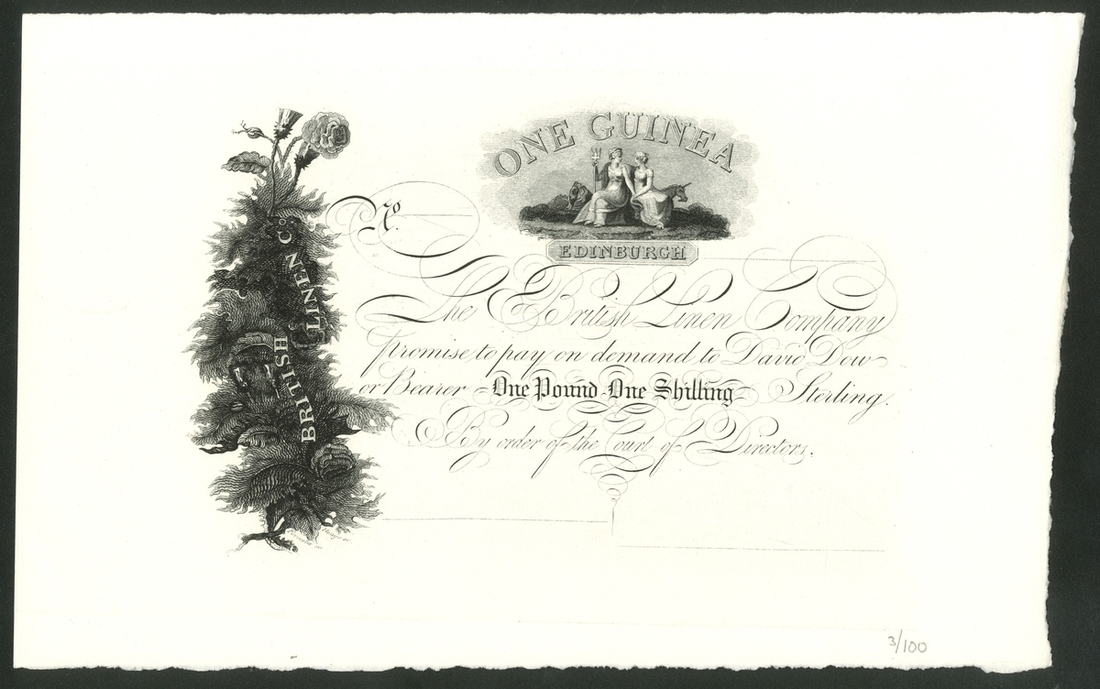 ONE GUINEA
No.
EDINBURGH
BRITISH LINEN Co.
The British Linen Company
promise to pay on demand to David Dow
or Bearer One Pound One Shilling Sterling.
By order of the Court of Directors.
3/100